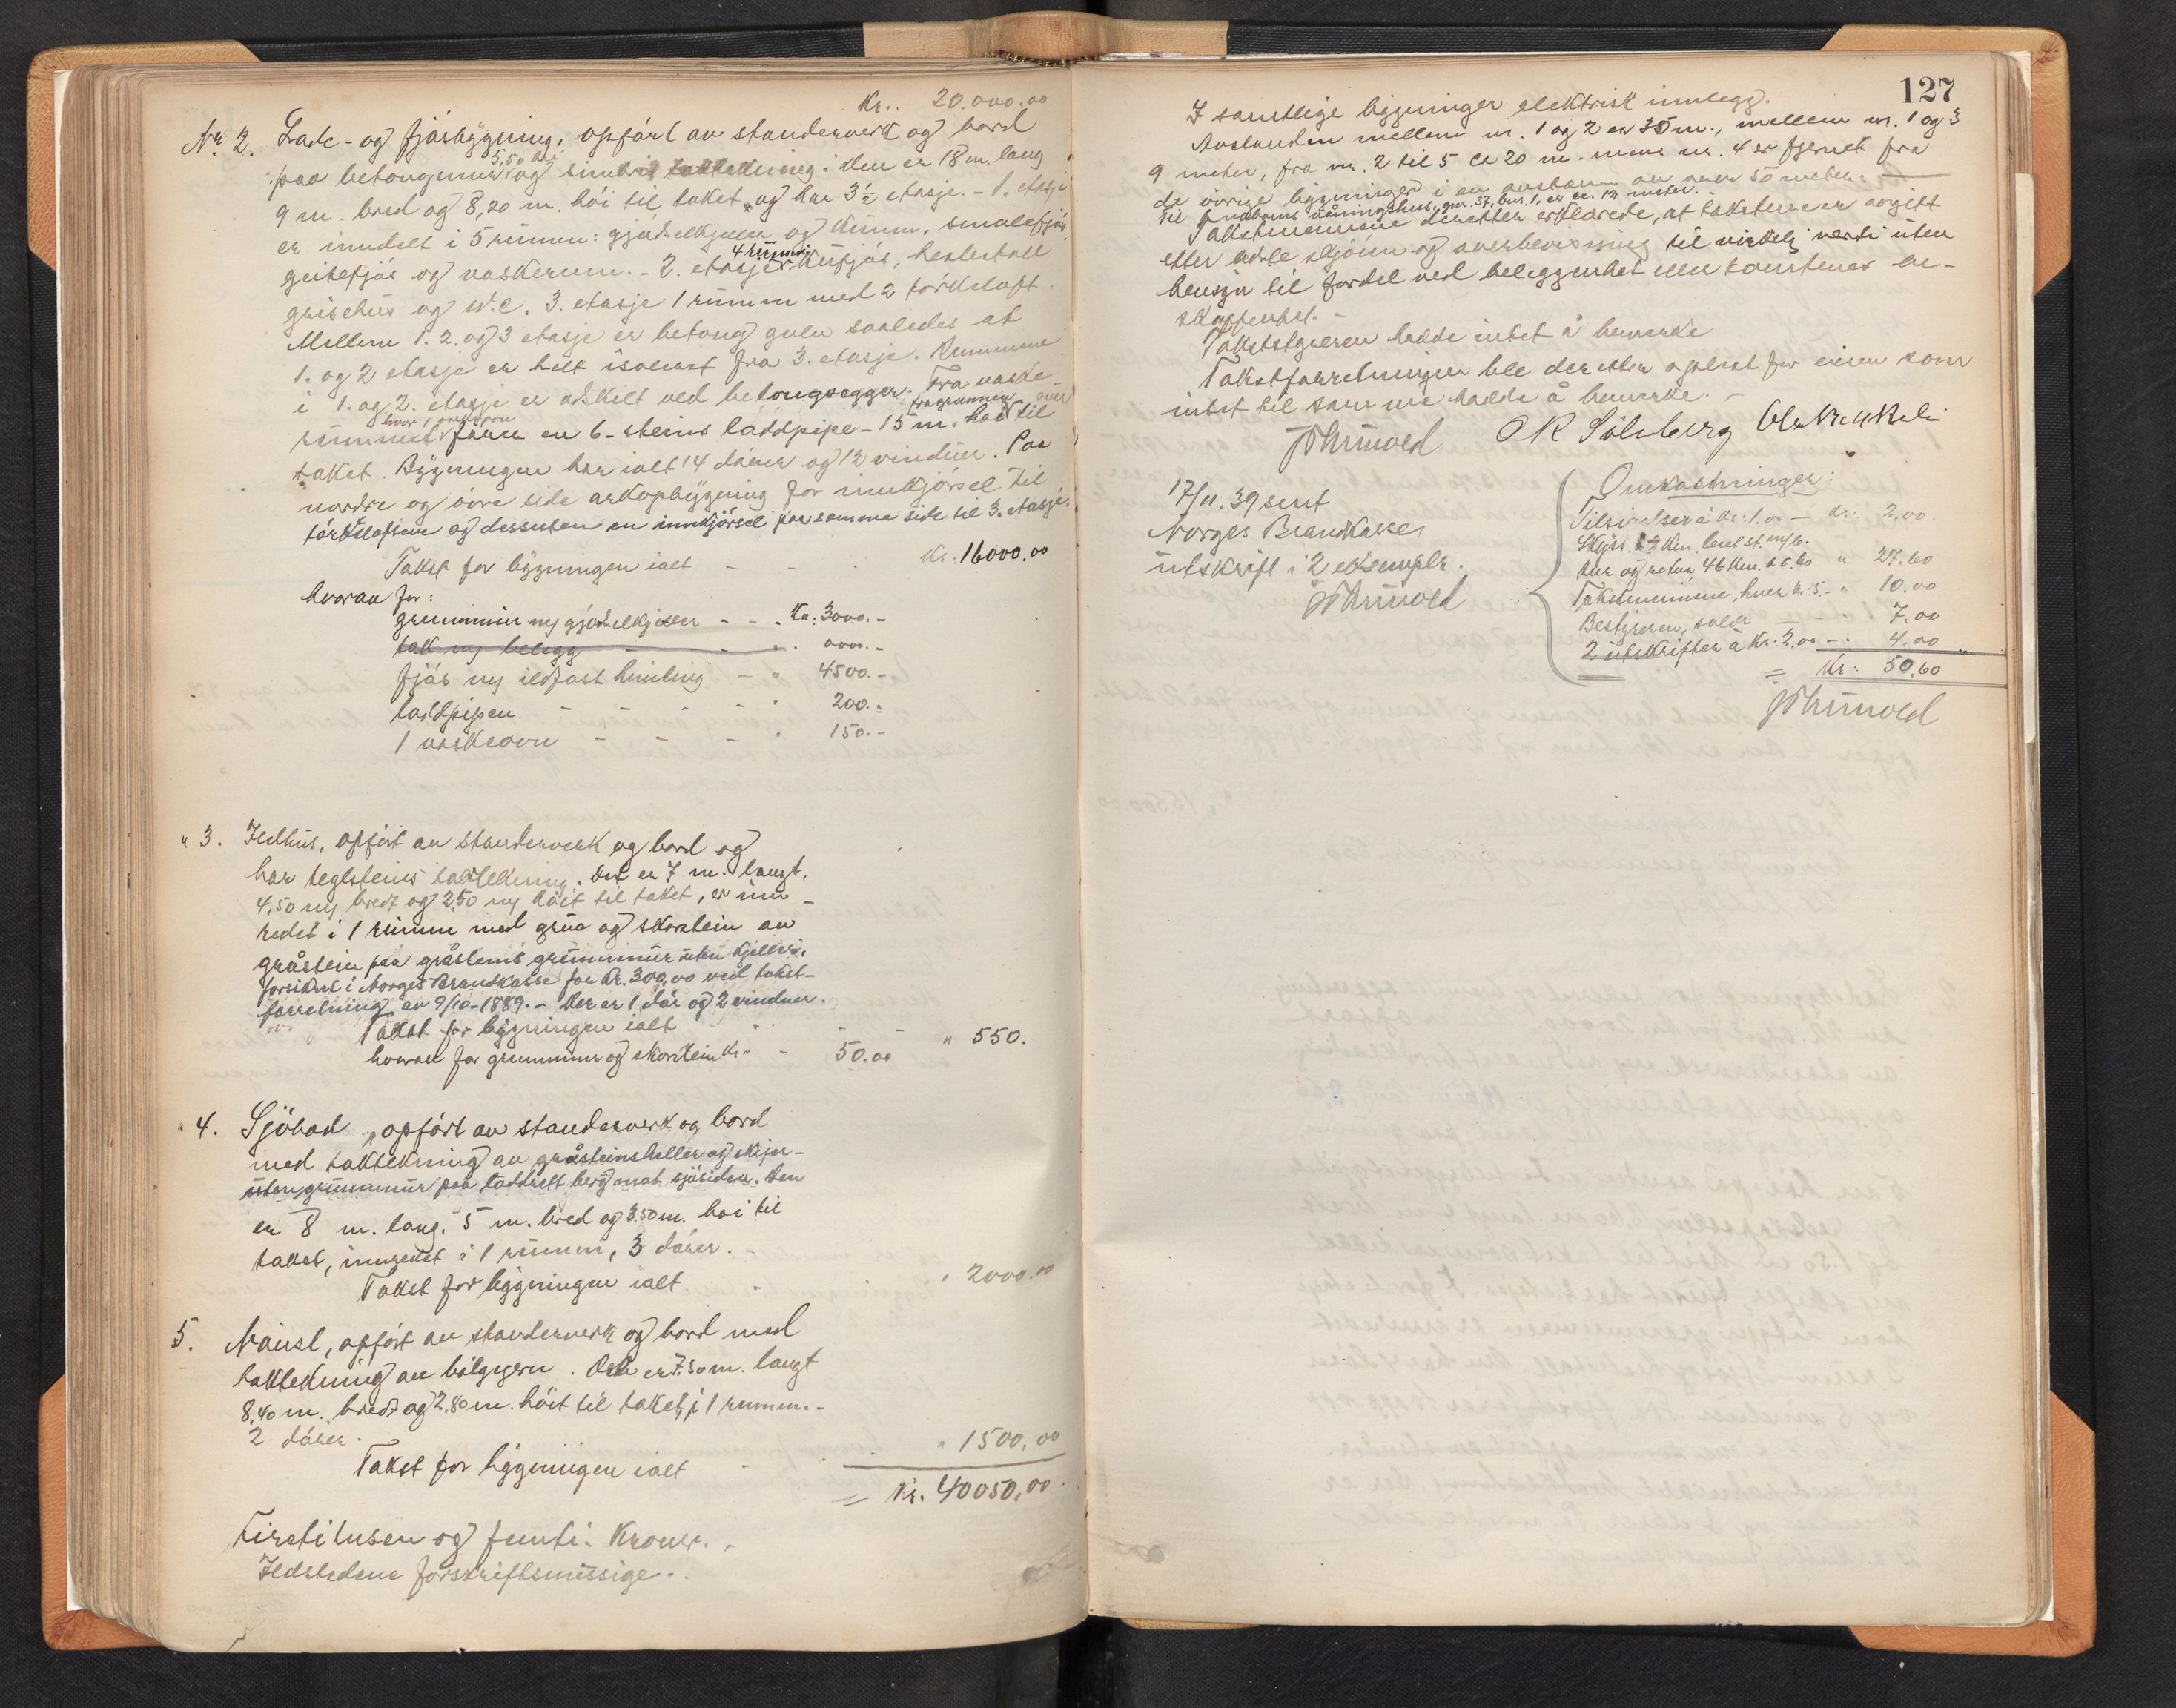 Kr.. 20.000.00
Nr. 2. Lade- og fjøsbygning, opført av standerverk og bord
paa betongmur 3,50 høi og taktekning: Den er 18 m. lang
9 m. bred og 8,20 m. høi til taket og har 3½ etasje. - 1. etasje
er inndelt i 5 rumm: gjødselkjeller og kumm, smalefjøs
geitefjøs og vaskerum. - 2. etasje 4 rumm: kufjøs, hestestall
grisehus og W.C. 3. etasje 1 rumm med 2 tørkeloft.
Mellem 1. 2. og 3 etasje er betong gulv saaledes at
1. og 2 etasje er helt isolert fra 3. etasje. Rummene
i 1. og 2. etasje er adskilt ved betongvegger. Fra vaske-
rummet fører en 6-steins laddpipe - 15 m. høi fra grunnen til over
taket. Bygningen har ialt 14 dører og 12 vinduer. Paa
nordre og øvre side arkopbygning for innkjørsel til
tørkeloftene og dessuten en innkjørsel paa samme side til 3. etasje.
Takst for bygningen ialt - - Kr. 16000.00
hvorav for:
grunnmur m/ gjødselkjeller - - . Kr. 3000.-
tak m/ belegg - - . 000.-
fjøs m/ ildfast himling - " 4500.-
laddpipen - - - - " 200.-
1 vaskeovn - - - " 150.-
" 3. Ildhus, opført av standerverk og bord og
har teglsteins taktekning. Det er 7 m. langt,
4,50 m/ bredt og 2,50 m/ høit til taket, er inn-
redet i 1 rumm med grue og skorstein av
gråstein paa gråsteins grunnmur uten kjeller.
forsikret i Norges Brandkasse for Kr. 300,00 ved takst-
forretning av 9/10-1889. - Der er 1 dør og 2 vinduer.
Takst for bygningen ialt - - " 550.
hvorav for grunnmur og skorstein Kr. - 50.00
" 4. Sjøbod, opført av standerverk og bord
med taktekning av gråsteinsheller og skifer-
uten grunnmur paa berg mot sjøsiden. Den
er 8 m. lang. 5 m. bred og 3.50 m. høi til
taket, innredet i 1 rumm, 3 dører. -
Takst for bygningen ialt - " 2000.00
5. Naust, opført av standerverk og bord med
taktekning av bølgejern. Det er 7.50 m. langt
8,40 m. bredt og 2.80 m. høit til taket, i 1 rumm. -
2 dører.
Takst for bygningen ialt - " 1500,00
= Kr. 40050,00.
Firetitusen og femti Kroner. -
Ildstedene forskriftsmessige. .
127
I samtlige bygninger elektrisk innlegg.
Avstanden mellem nr. 1 og 2 er 35 m., mellem nr. 1 og 3
9 meter, fra nr. 2 til 5 ca 20 m. mens nr. 4 er fjernet fra
de øvrige bygninger i en avstand av over 50 meter. -
Til naboens våningshus, gnr. 37, bnr. 1, er ca. 12 meter.
Takstmennene deretter erklærede, at taksten er avgitt
efter bedste skjønn og overbevisning til virkelig verdi uten
hensyn til fordel ved beliggenhet eller konstens be-
skaffenhet. -
Takstbestyreren hadde intet å bemerke
Takstforretningen ble deretter oplest for eieren som
intet til samme hadde å bemerke. -
O R Sølvberg
17/11. 39 sent
Norges Brandkasse
utskrift i 2 eksemplr.
Omkostninger:
Tilsigelser à Kr. 1.00 - Kr. 2,00
tur og retur 46 Km. à 0.60 " 27.60
Takstmennene, hver Kr. 5. - " 10.00
Bestyreren, - - " 7.00
2 utskrifter à Kr. 2.00 - " 4.00
= Kr: 50,60